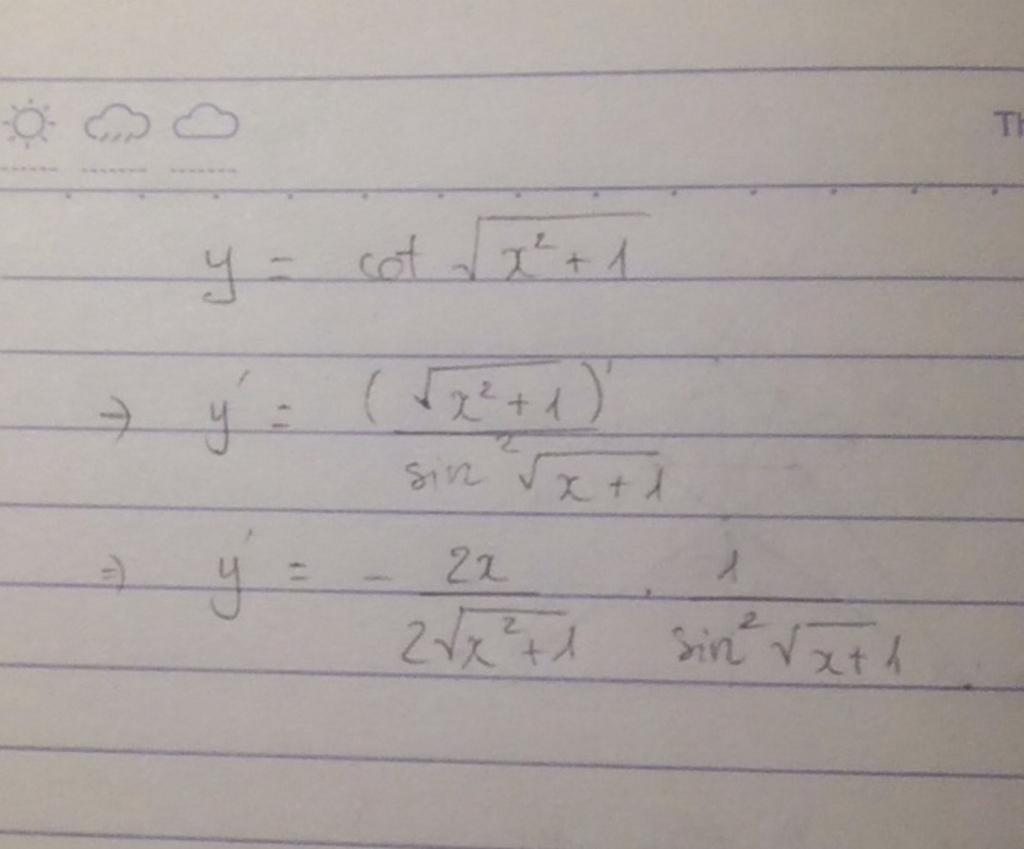 Th
y = cot √(x² + 1)
→ y' = (√(x² + 1))' / sin² √(x + 1)
⇒ y' = - 2x / 2√(x² + 1) . 1 / sin² √(x + 1)